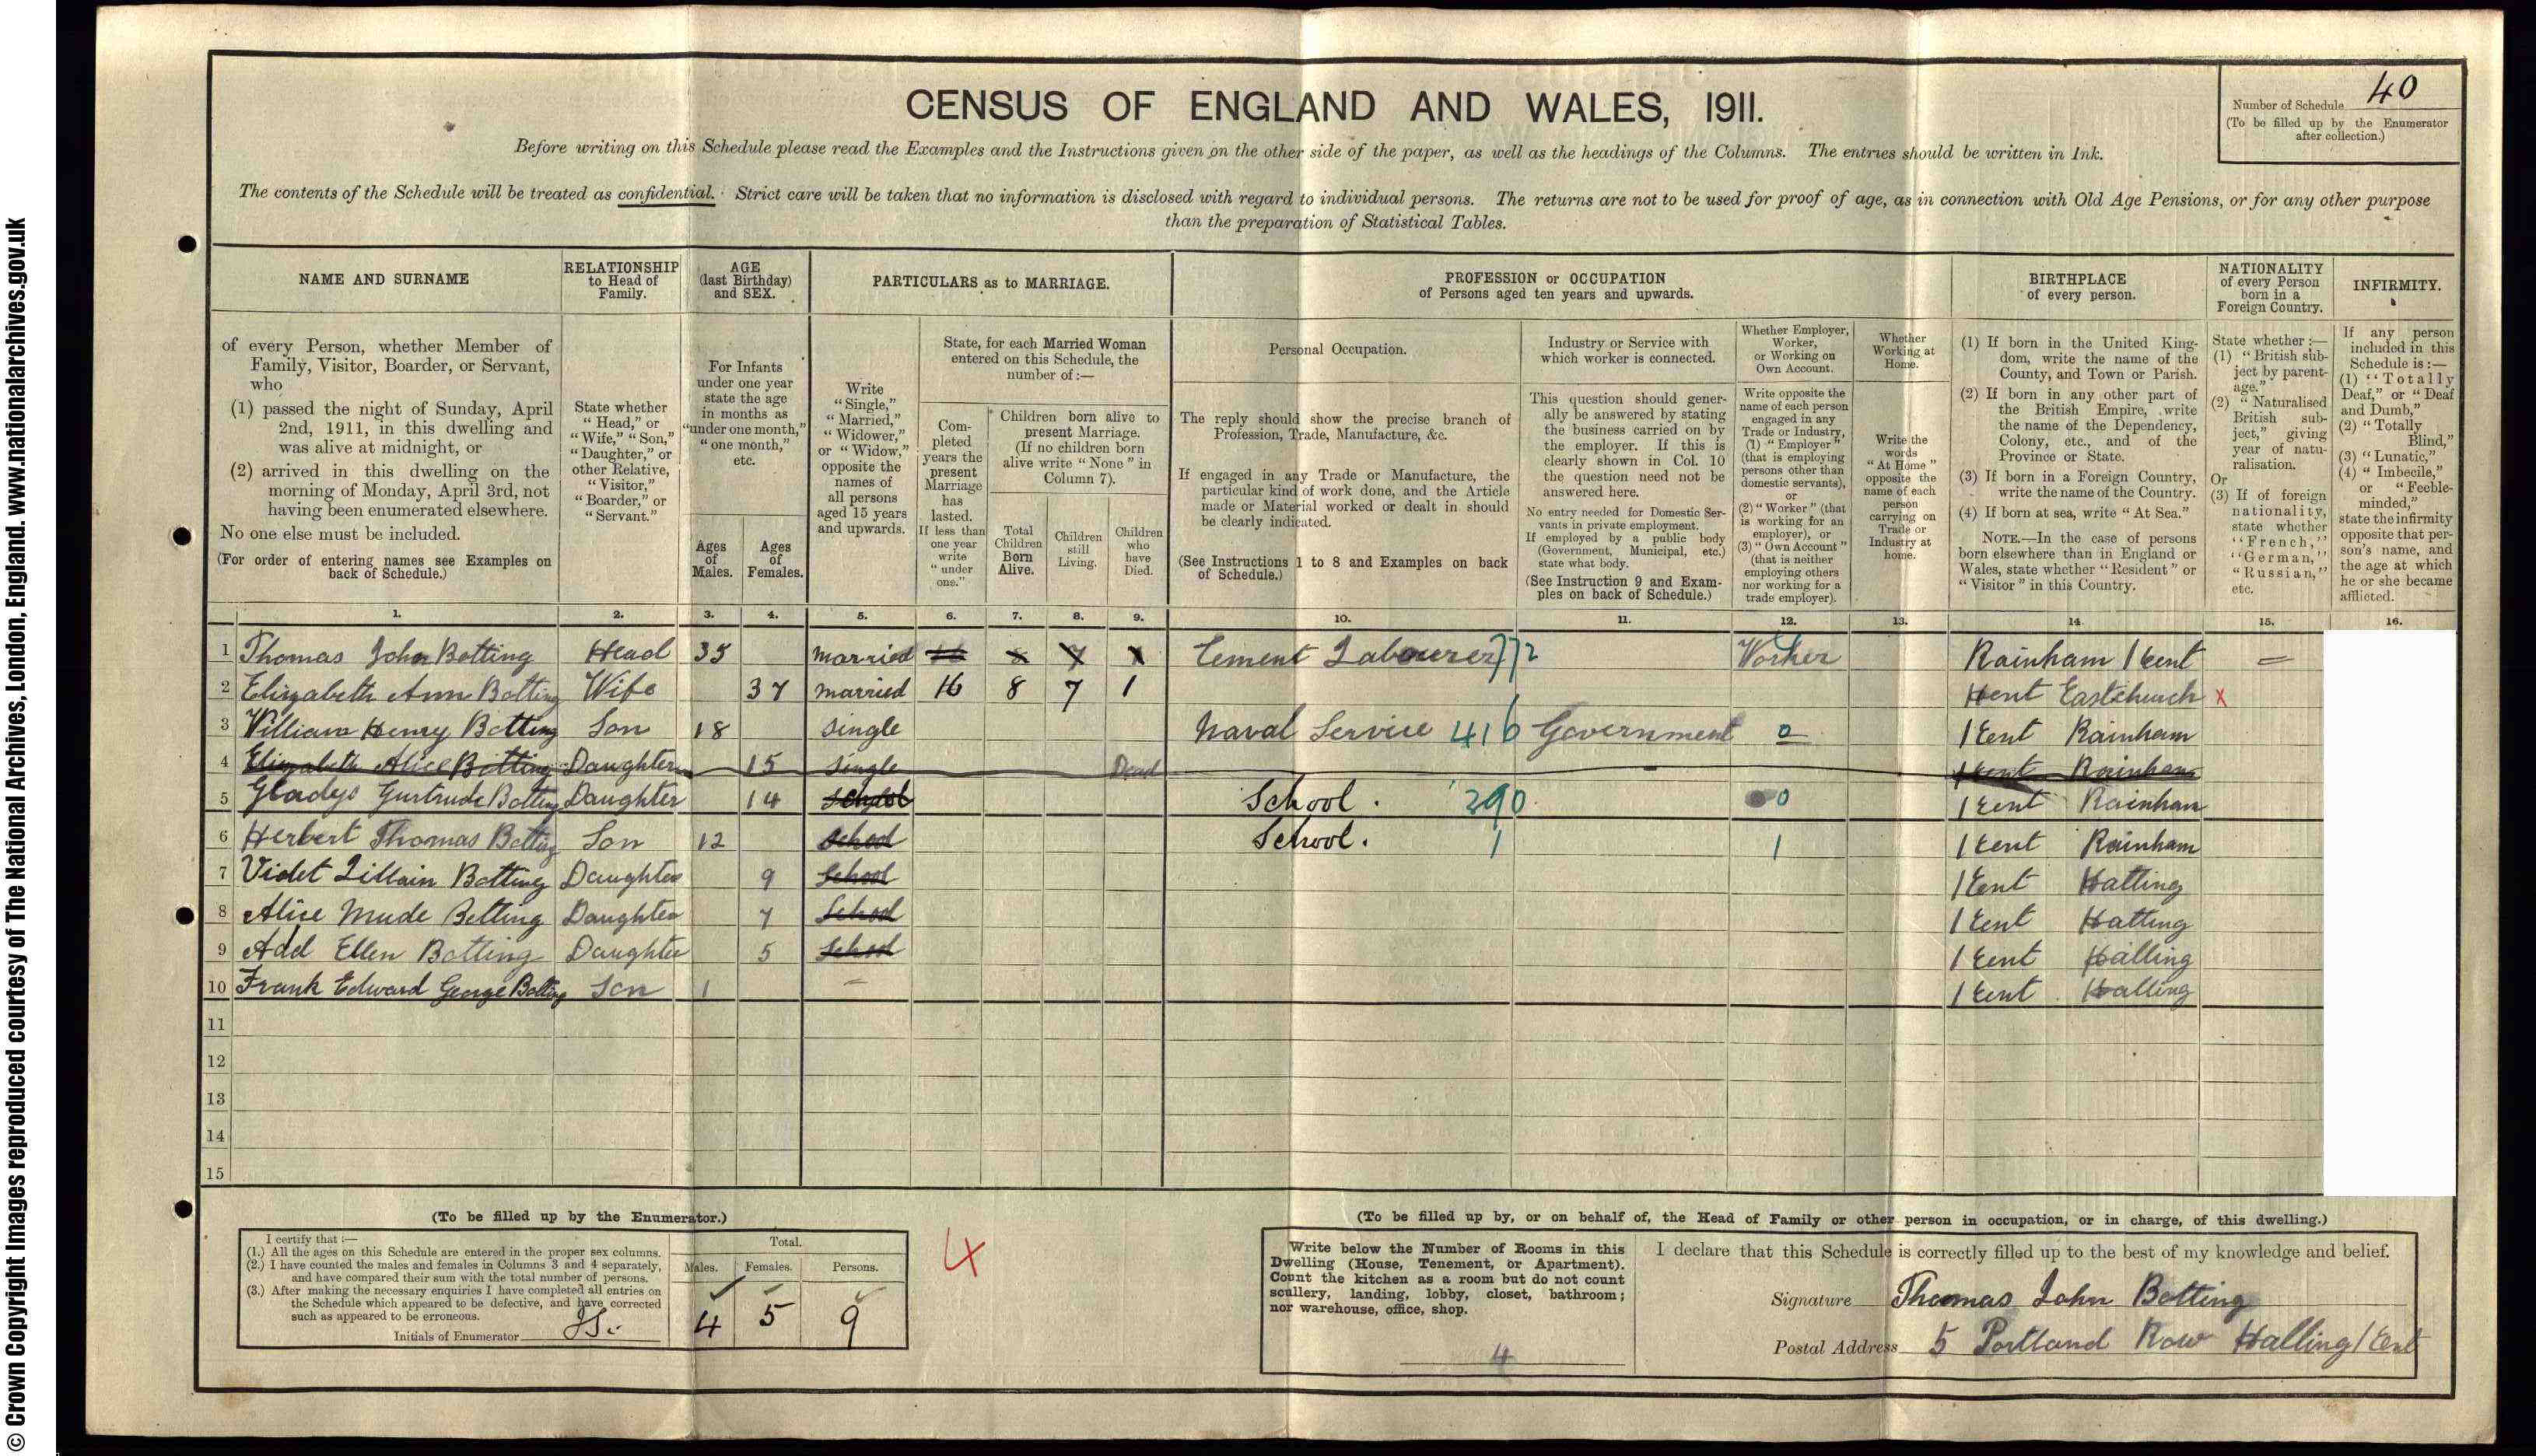 CENSUS OF ENGLAND AND WALES, 1911.
Number of Schedule 40
(To be filled up by the Enumerator
after collection.)
Before writing on this Schedule please read the Examples and the Instructions given on the other side of the paper, as well as the headings of the Columns. The entries should be written in Ink.
The contents of the Schedule will be treated as confidential. Strict care will be taken that no information is disclosed with regard to individual persons. The returns are not to be used for proof of age, as in connection with Old Age Pensions, or for any other purpose
than the preparation of Statistical Tables.
NAME AND SURNAME
of every Person, whether Member of
Family, Visitor, Boarder, or Servant,
who
(1) passed the night of Sunday, April
2nd, 1911, in this dwelling and
was alive at midnight, or
(2) arrived in this dwelling on the
morning of Monday, April 3rd, not
having been enumerated elsewhere.
No one else must be included.
(For order of entering names see Examples on
back of Schedule.)
RELATIONSHIP
to Head of
Family.
State whether
"Head," or
"Wife," "Son,"
"Daughter," or
other Relative,
"Visitor,"
"Boarder," or
"Servant."
AGE
(last Birthday)
and SEX.
For Infants
under one year
state the age
in months as
"under one month,"
"one month,"
etc.
Ages
of
Males.
Ages
of
Females.
PARTICULARS as to MARRIAGE.
Write
"Single,"
"Married,"
"Widower,"
or "Widow,"
opposite the
names of
all persons
aged 15 years
and upwards.
State, for each Married Woman
entered on this Schedule, the
number of:—
Com-
pleted
years the
present
Marriage
has
lasted.
If less than
one year
write
"under
one."
Children born alive to
present Marriage.
(If no children born
alive write "None" in
Column 7).
Total
Children
Born
Alive.
Children
still
Living.
Children
who
have
Died.
PROFESSION or OCCUPATION
of Persons aged ten years and upwards.
Personal Occupation.
The reply should show the precise branch of
Profession, Trade, Manufacture, &c.
If engaged in any Trade or Manufacture, the
particular kind of work done, and the Article
made or Material worked or dealt in should
be clearly indicated.
(See Instructions 1 to 8 and Examples on back
of Schedule.)
Industry or Service with
which worker is connected.
This question should gener-
ally be answered by stating
the business carried on by
the employer. If this is
clearly shown in Col. 10
the question need not be
answered here.
No entry needed for Domestic Ser-
vants in private employment.
If employed by a public body
(Government, Municipal, etc.)
state what body.
(See Instruction 9 and Exam-
ples on back of Schedule.)
Whether Employer,
Worker,
or Working on
Own Account.
Write opposite the
name of each person
engaged in any
Trade or Industry,
(1) "Employer"
(that is employing
persons other than
domestic servants),
or
(2) "Worker" (that
is working for an
employer), or
(3) "Own Account"
(that is neither
employing others
nor working for a
trade employer).
Whether
Working at
Home.
Write the
words
"At Home"
opposite the
name of each
person
carrying on
Trade or
Industry at
home.
BIRTHPLACE
of every person.
(1) If born in the United King-
dom, write the name of the
County, and Town or Parish.
(2) If born in any other part of
the British Empire, write
the name of the Dependency,
Colony, etc., and of the
Province or State.
(3) If born in a Foreign Country,
write the name of the Country.
(4) If born at sea, write "At Sea."
NOTE.—In the case of persons
born elsewhere than in England or
Wales, state whether "Resident" or
"Visitor" in this Country.
NATIONALITY
of every Person
born in a
Foreign Country.
State whether:—
(1) "British sub-
ject by parent-
age."
(2) "Naturalised
British sub-
ject," giving
year of natu-
ralisation.
Or
(3) If of foreign
nationality,
state whether
"French,"
"German,"
"Russian,"
etc.
INFIRMITY.
If any person
included in this
Schedule is:—
(1) "Totally
Deaf," or "Deaf
and Dumb,"
(2) "Totally
Blind,"
(3) "Lunatic,"
(4) "Imbecile,"
or "Feeble-
minded,"
state the infirmity
opposite that per-
son's name, and
the age at which
he or she became
afflicted.
1. 2. 3. 4. 5. 6. 7. 8. 9. 10. 11. 12. 13. 14. 15. 16.
1 Thomas John Botting Head 35 married 16 8 7 1 Cement Labourer 772 Worker Rainham Kent =
2 Elizabeth Ann Botting Wife 37 married 16 8 7 1 Kent Eastchurch x
3 William Henry Botting Son 18 single Naval Service 416 Government 0 Kent Rainham
4 Elizabeth Alice Botting Daughter 15 single Dead Kent Rainham
5 Gladys Gurtrude Botting Daughter 14 School School. 390 0 Kent Rainham
6 Herbert Thomas Botting Son 12 School School. 1 1 Kent Rainham
7 Violet Lillain Botting Daughter 9 School Kent Halling
8 Alice Mude Botting Daughter 7 School Kent Halling
9 Add Ellen Botting Daughter 5 School Kent Halling
10 Frank Edward George Botting Son 1 – Kent Halling
11
12
13
14
15
(To be filled up by the Enumerator.)
I certify that:—
(1.) All the ages on this Schedule are entered in the proper sex columns.
(2.) I have counted the males and females in Columns 3 and 4 separately,
and have compared their sum with the total number of persons.
(3.) After making the necessary enquiries I have completed all entries on
the Schedule which appeared to be defective, and have corrected
such as appeared to be erroneous.
Initials of Enumerator
Total.
Males. Females. Persons.
4 5 9
(To be filled up by, or on behalf of, the Head of Family or other person in occupation, or in charge, of this dwelling.)
Write below the Number of Rooms in this
Dwelling (House, Tenement, or Apartment).
Count the kitchen as a room but do not count
scullery, landing, lobby, closet, bathroom;
nor warehouse, office, shop.
4
I declare that this Schedule is correctly filled up to the best of my knowledge and belief.
Signature Thomas John Botting
Postal Address 5 Portland Row Halling Kent
© Crown Copyright Images reproduced courtesy of The National Archives, London, England. www.nationalarchives.gov.uk